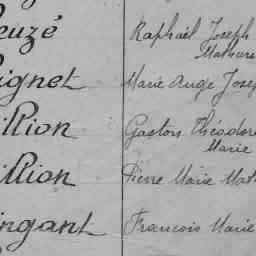 euzé Raphaël Joseph
Mathurin
ignet Marie Ange Josep
illion Gaston Théodore
Marie
illion Pierre Marie Math
ingant François Marie